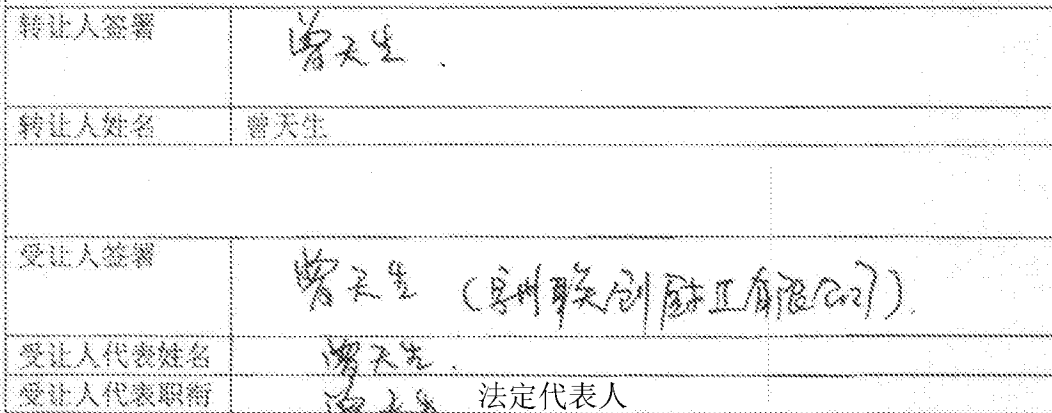 转让人签署 曾天生.
转让人姓名 曾天生
受让人签署 曾天生 (泉州联创厨工有限公司).
受让人代表姓名 曾天生.
受让人代表职衔 法定代表人